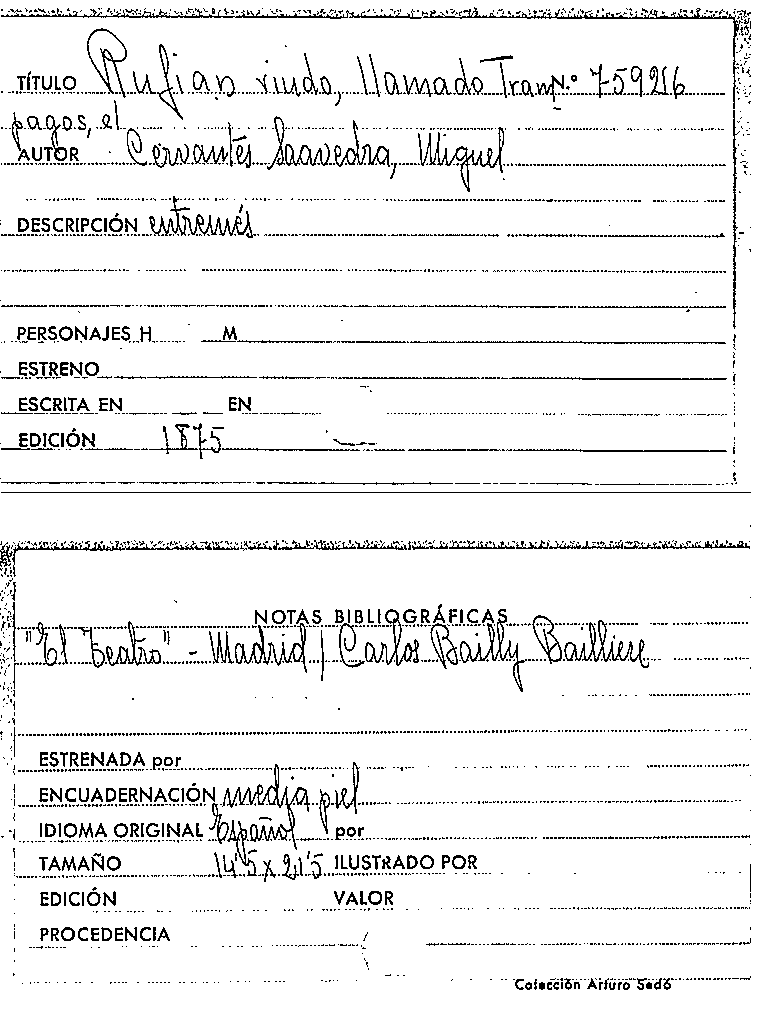 TÍTULO Rufian viudo, llamado Tram N.º 759216
pagos, el
AUTOR Cervantes Saavedra, Miguel
DESCRIPCIÓN entremés
PERSONAJES H M
ESTRENO
ESCRITA EN EN
EDICIÓN 1875
NOTAS BIBLIOGRÁFICAS
"El Teatro" - Madrid / Carlos Bailly Bailliere
ESTRENADA por
ENCUADERNACIÓN media piel
IDIOMA ORIGINAL Español por
TAMAÑO 14'5 x 21'5 ILUSTRADO POR
EDICIÓN VALOR
PROCEDENCIA
Colección Arturo Sedó